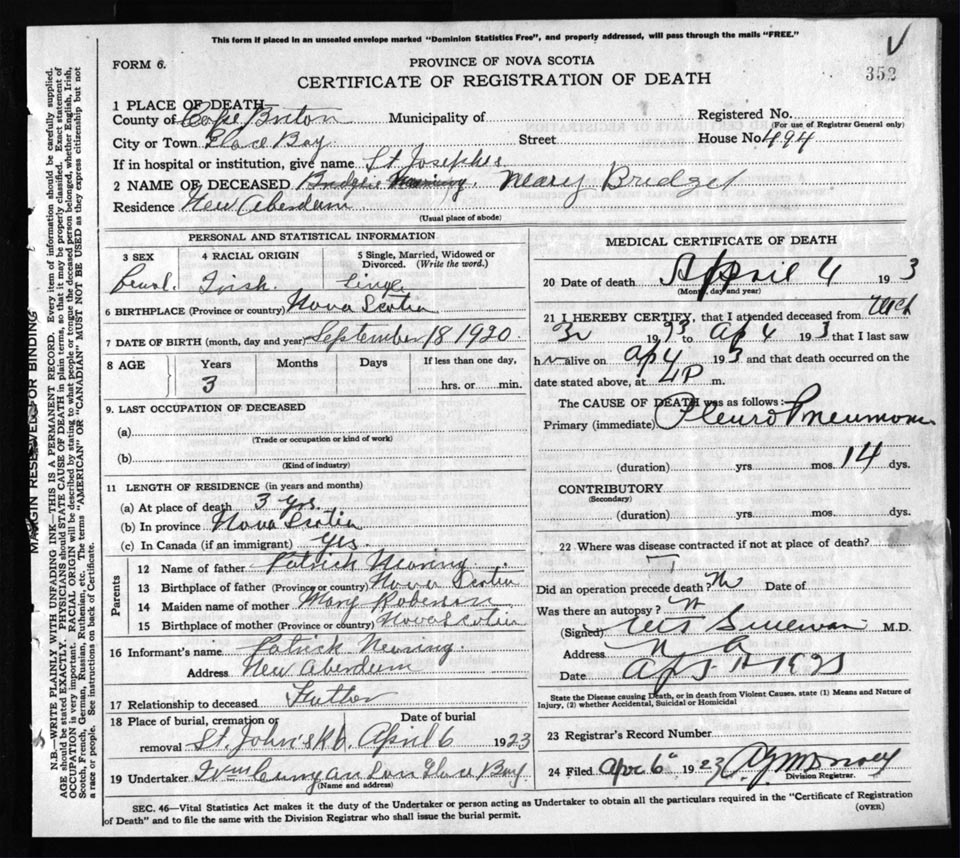 This form if placed in an unsealed envelope marked "Dominion Statistics Free", and properly addressed, will pass through the mails "FREE."
FORM 6.
PROVINCE OF NOVA SCOTIA
352
CERTIFICATE OF REGISTRATION OF DEATH
1 PLACE OF DEATH
County of Cape Breton Municipality of Registered No.
(For use of Registrar General only)
City or Town Glace Bay Street House No. 494
If in hospital or institution, give name St Josephs
2 NAME OF DECEASED Mary Bridget
Residence New Aberdeen
(Usual place of abode)
PERSONAL AND STATISTICAL INFORMATION
3 SEX 4 RACIAL ORIGIN 5 Single, Married, Widowed or Divorced. (Write the word.)
Irish Single
6 BIRTHPLACE (Province or country) Nova Scotia
7 DATE OF BIRTH (month, day and year) September 18 1920
8 AGE Years Months Days If less than one day,
3 hrs. or min.
9. LAST OCCUPATION OF DECEASED
(a)
(Trade or occupation or kind of work)
(b)
(Kind of industry)
11 LENGTH OF RESIDENCE (in years and months)
(a) At place of death 3 yrs.
(b) In province Nova Scotia
(c) In Canada (if an immigrant) yes.
Parents
12 Name of father Patrick Nearing
13 Birthplace of father (Province or country) Nova Scotia
14 Maiden name of mother Mary
15 Birthplace of mother (Province or country) Nova Scotia
16 Informant's name Patrick Nearing
Address New Aberdeen
17 Relationship to deceased Father
18 Place of burial, cremation or removal Date of burial
St. John's April 6 1923
19 Undertaker Glace Bay
(Name and address)
MEDICAL CERTIFICATE OF DEATH
20 Date of death April 4 19 3
(Month, day and year)
21 I HEREBY CERTIFY, that I attended deceased from
19 23 to Ap 4 19 3 that I last saw
h alive on Ap 4 19 3 and that death occurred on the
date stated above, at 4P m.
The CAUSE OF DEATH was as follows:
Primary (immediate) Pleuro Pneumonia
(duration) yrs. mos. 14 dys.
CONTRIBUTORY
(Secondary)
(duration) yrs. mos. dys.
22 Where was disease contracted if not at place of death?
Did an operation precede death? No Date of
Was there an autopsy?
(Signed) M.D.
Address
Date 1923
State the Disease causing Death, or in death from Violent Causes, state (1) Means and Nature of
Injury, (2) whether Accidental, Suicidal or Homicidal
23 Registrar's Record Number
24 Filed Apr 6 1923
Division Registrar.
SEC. 46—Vital Statistics Act makes it the duty of the Undertaker or person acting as Undertaker to obtain all the particulars required in the "Certificate of Registration
of Death" and to file the same with the Division Registrar who shall issue the burial permit.
(OVER)
MARGIN RESERVED FOR BINDING
N.B.—WRITE PLAINLY WITH UNFADING INK—THIS IS A PERMANENT RECORD. Every item of information should be carefully supplied.
AGE should be stated EXACTLY. PHYSICIANS should STATE CAUSE OF DEATH in plain terms, so that it may be properly classified. Exact statement of
OCCUPATION is very important. RACIAL ORIGIN will be described by stating to what people or tongue the deceased person belonged, whether English, Irish,
Scotch, French, German, Russian, Ruthenian, etc. The terms "AMERICAN" OR "CANADIAN" MUST NOT BE USED as they express citizenship but not
a race or people. See instructions on back of Certificate.